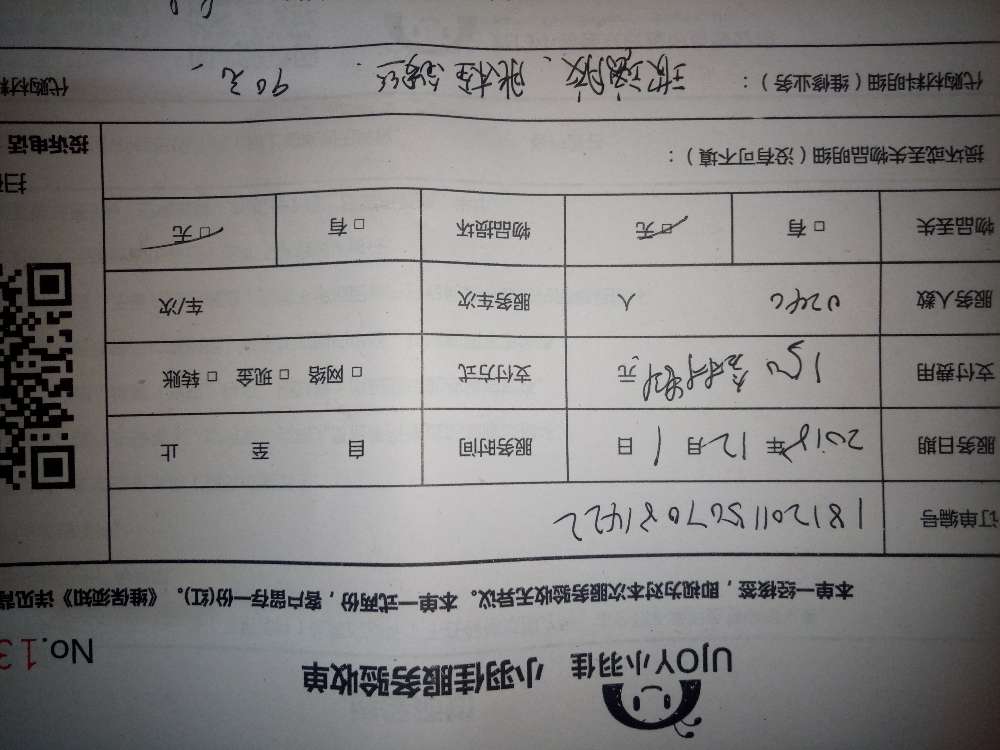 UJOY小羽佳 小羽佳服务验收单
No.13
本单一经核签，即视为对本次服务验收无异议。本单一式两份，客户留存一份(红)。《维保须知》详见背
订单编号 181201156703 1422
服务日期 2018年12月1日 服务时间 自 至 止
支付费用 150 元 支付方式 □ 网络 □ 现金 □ 转账
服务人数 0246 人 服务车次 车/次
物品丢失 □ 有 □ 无 物品损坏 □ 有 □ 无
损坏或丢失物品明细（没有可不填）：
投诉电话
扫
代购材料明细（维修业务）： 玻璃胶、 90元
代购材料